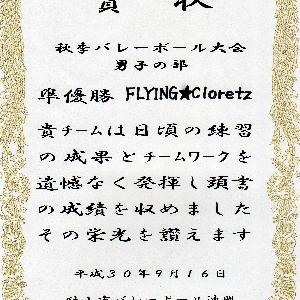 賞 状
秋季バレーボール大会
男子の部
準優勝 FLYING★Cloretz
貴チームは日頃の練習
の成果とチームワークを
遺憾なく発揮し頭書
の成績を収めました
その栄光を讃えます
平成30年9月16日